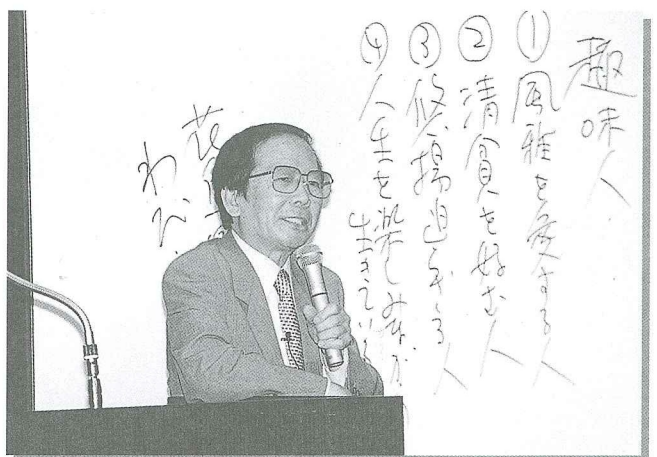 趣味人
①風雅を愛する人
②清貧を好む人
③悠揚迫らざる人
④人生を楽しみながら
生きている
わび